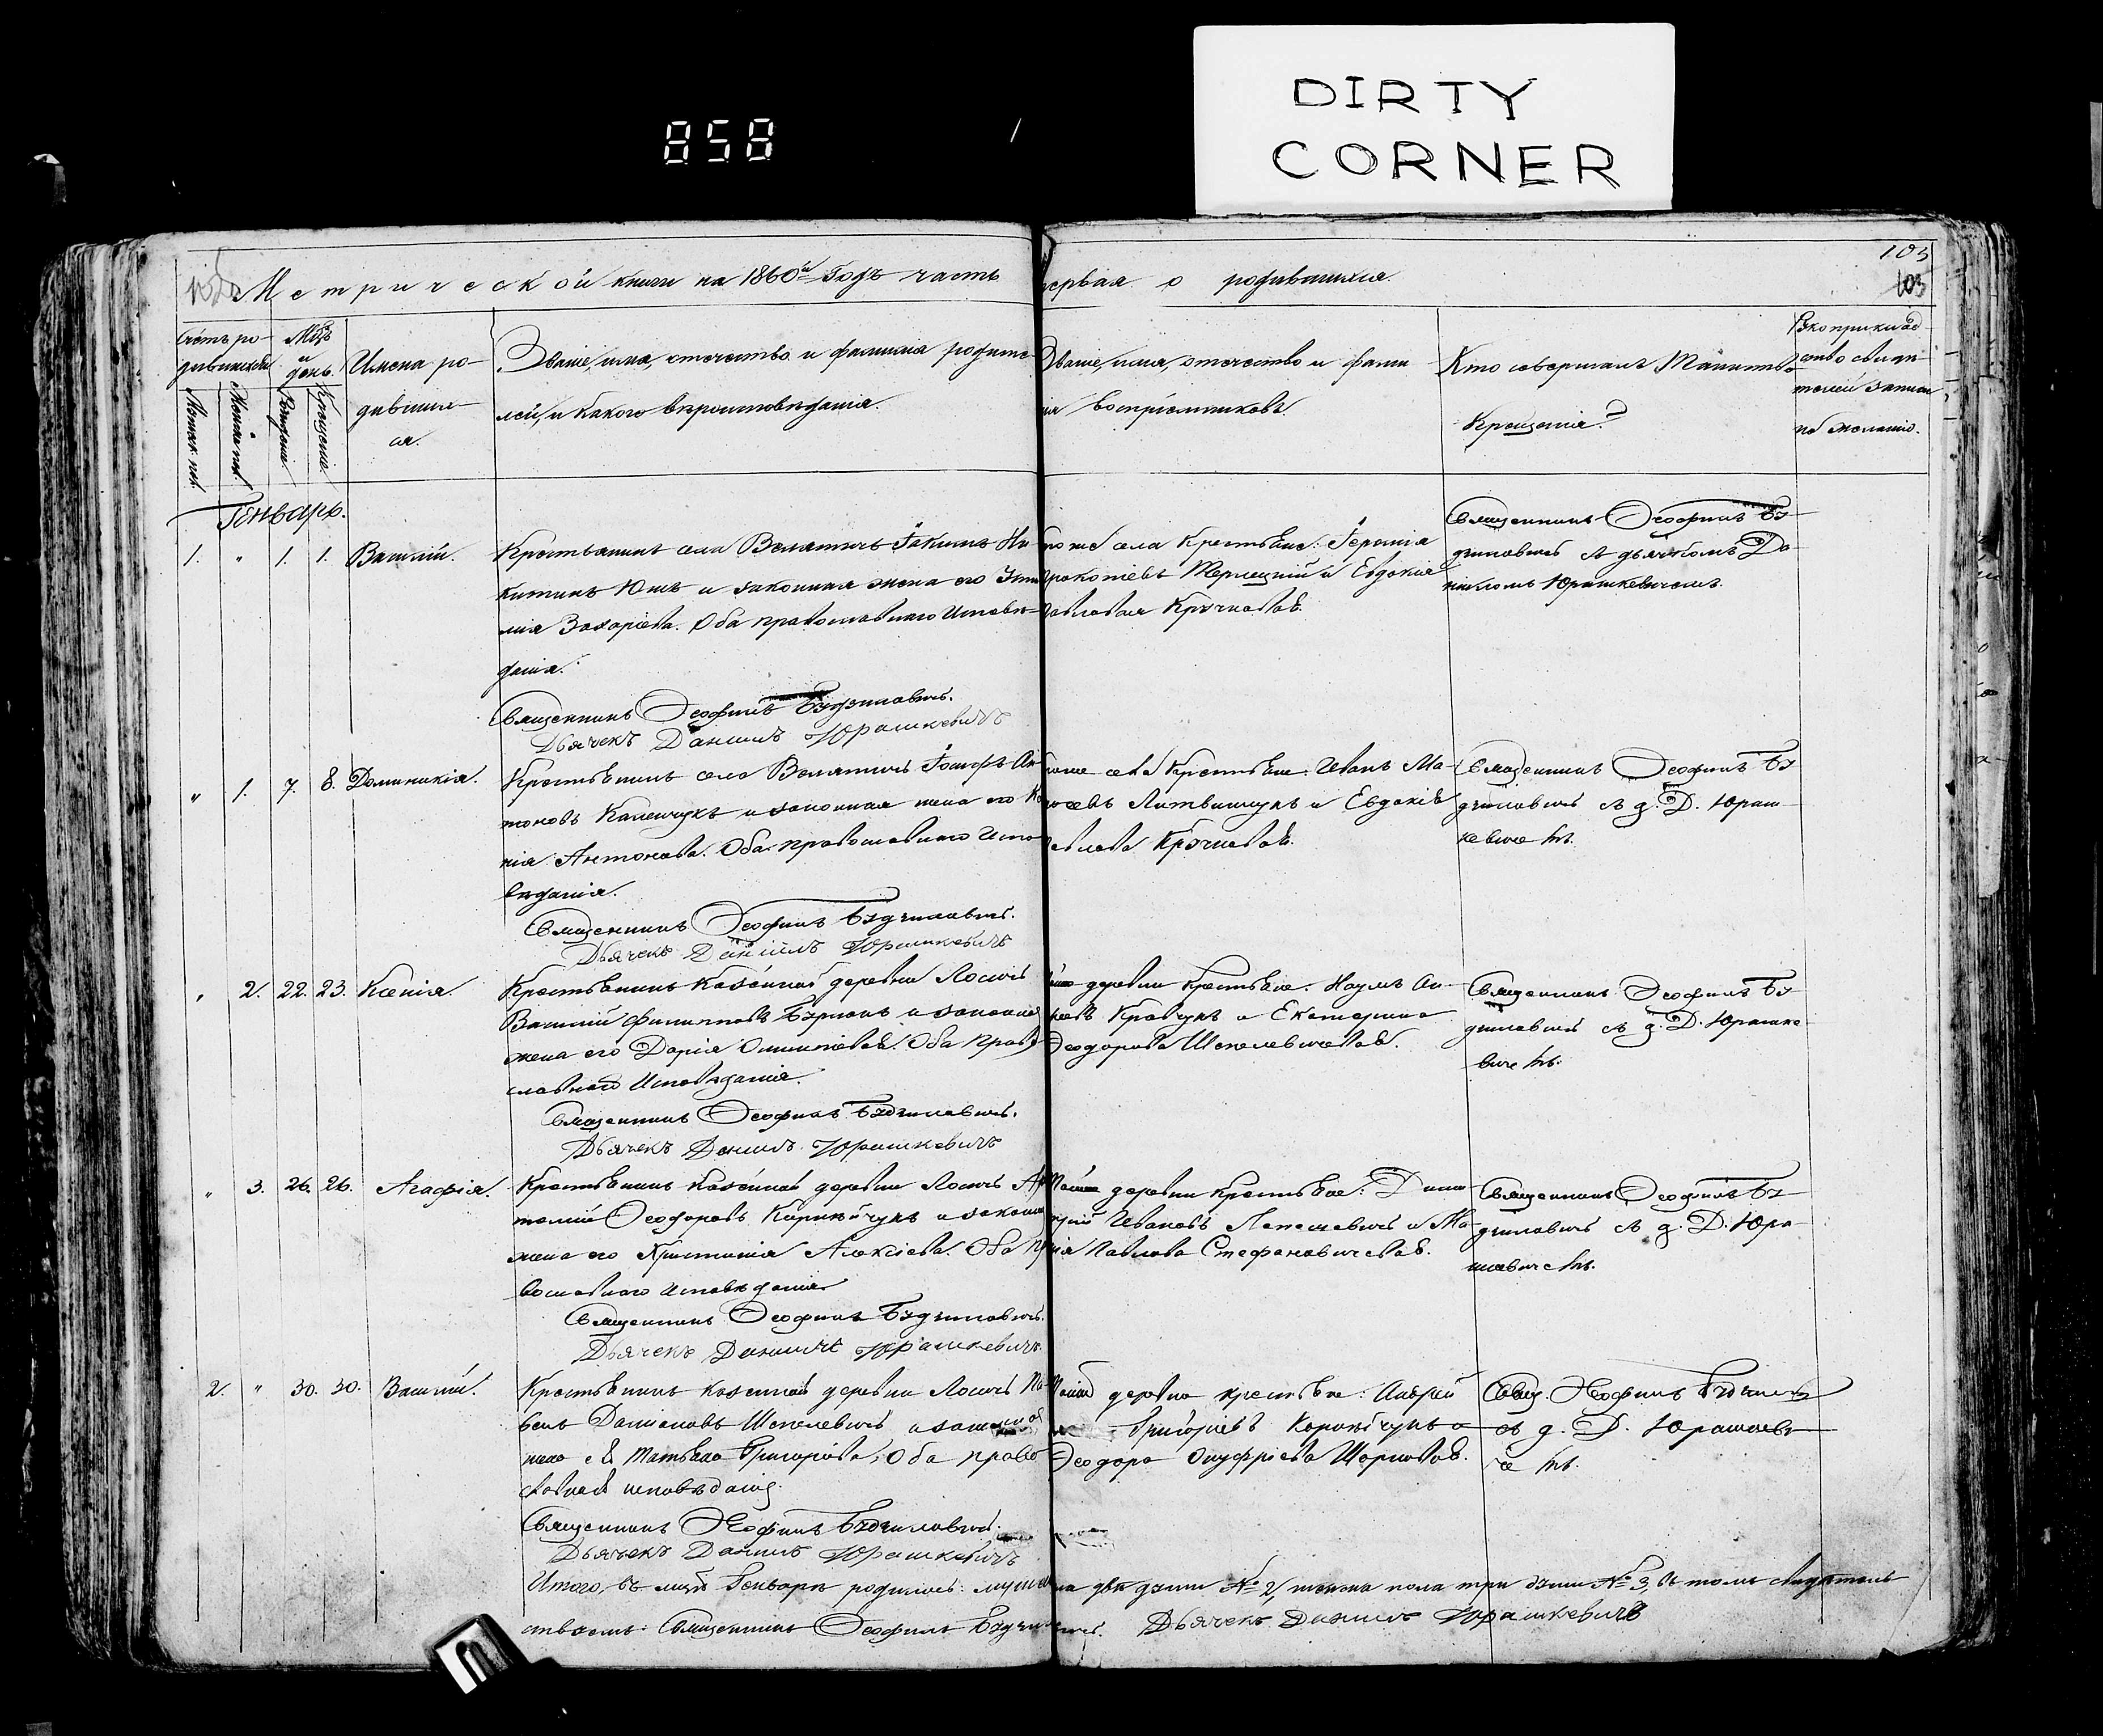 DIRTY
CORNER
858
105
103
Метрической книги на 1860й Годъ часть первая о родившихся.
Счетъ ро-
дившихся
Мужеск. пол.
Женска пол.
Мѣцъ
и
день.
Рожденіе
Крещеніе
Имена ро-
дивших-
ся.
Званіе, имя, отечество и фамилія родите-
лей, и какого вѣроисповѣданія.
Званіе, имя, отечество и фами
лія Воспріемниковъ
Кто совершалъ Таинство
Крещенія?
Рукоприклад
ство свидѣ-
телей записи
по желанію.
Генварь.
1. " 1. 1. Василій.
Крестьянинъ села Велятичь Іакимъ Ни-
китинъ Юшъ и законная жена его
лія Захаріева. Оба православнаго Исповѣ-
данія.
Священникъ Ѳеофилъ Будзиловичъ.
Дьячекъ Даніилъ Юрашкевичъ
того же села Крестьяне:
Прокопіевъ Терлецкій и Евдокія
Павловая Кручковая.
Священникъ Ѳеофилъ Бу-
дзиловичъ съ дьячкомъ Да-
ніиломъ Юрашкевичемъ.
" 1. 7. 8. Домникія.
Крестьянинъ села Велятичь Іосифъ Ан-
тоновъ Каленчукъ и законная жена его
нія Антонова. Оба православнаго Испо-
вѣданія.
Священникъ Ѳеофилъ Будзиловичъ.
Дьячекъ Даніилъ Юрашкевичъ
села Крестьяне: Иванъ Ма-
Литвинчукъ и Евдокія
Павлова Кручковая.
Священникъ Ѳеофилъ Бу
дзиловичъ съ д. Д. Юраш-
кевичемъ.
" 2. 22. 23. Ксенія.
Крестьянинъ казенной деревни Лосичь
Василій Филипповъ и законная
жена его Дарія Оба право-
славнаго Исповѣданія.
Священникъ Ѳеофилъ Будзиловичъ.
Дьячекъ Даніилъ Юрашкевичъ
деревни Крестьяне: Наумъ
Кравчукъ и Екатерина
Ѳеодорова Шепелевичевая.
Священникъ Ѳеофилъ Бу
дзиловичъ съ д. Д. Юрашке
вичемъ.
" 3. 26. 26. Агафія.
Крестьянинъ казенной деревни Лосичь Ар-
темій Ѳеодоровъ Карнѣйчукъ и законная
жена его Христинія Алексіева. Оба пра-
вославнаго Исповѣданія
Священникъ Ѳеофилъ Будзиловичъ.
Дьячекъ Даніилъ Юрашкевичъ
деревни Крестьяне: Дими-
трій Ивановъ и Ма-
рія Павлова Стефановичевая.
Священникъ Ѳеофилъ Бу-
дзиловичъ съ д. Д. Юра-
шкевичемъ.
2. " 30. 30. Василій.
Крестьянинъ казенной деревни Лосичь Па-
велъ Даміановъ Шепелевичъ и законная
жена его Татьяна Григорьева, Оба право
славнаго исповѣданія.
Священникъ Ѳеофилъ Будзиловичъ.
Дьячекъ Даніилъ Юрашкевичъ
деревни крестьяне: Андрей
Григоріевъ Карнѣйчукъ и
Ѳеодора Онуфріева
Свящ. Ѳеофилъ Будзилов
съ д. Д. Юрашкеви
чемъ.
Итого, въ мцѣ Генварѣ родилось: мужеска двѣ души № 2, женска пола три души № 3, въ томъ свидѣтель
ствуемъ: Священникъ Ѳеофилъ Будзиловичъ. Дьячекъ Даніилъ Юрашкевичъ